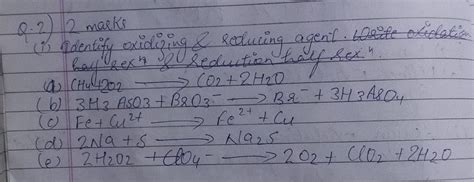 Q-2) 2 marks
(i) Identify oxidizing & reducing agent. Write oxidation
half rexⁿ & reduction half rexⁿ.
(a) CH4+2O2 ⟶ CO2+2H2O
(b) 3H3AsO3+BrO3⁻ ⟶ Br⁻ + 3H3AsO4
(c) Fe+Cu²⁺ ⟶ Fe²⁺ + Cu
(d) 2Na + S ⟶ Na2S
(e) 2H2O2 + ClO4⁻ ⟶ 2O2 + ClO2⁻ + 2H2O